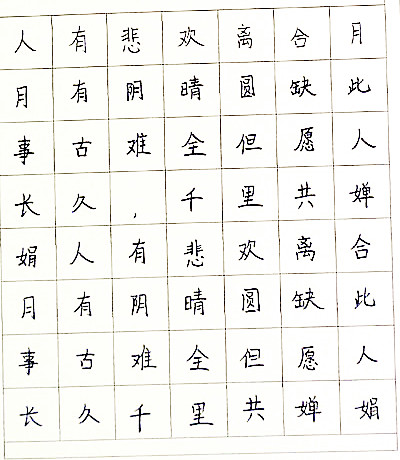 人有悲欢离合月
月有阴晴圆缺此
事古难全但愿人
长久，千里共婵
娟人有悲欢离合
月有阴晴圆缺此
事古难全但愿人
长久千里共婵娟